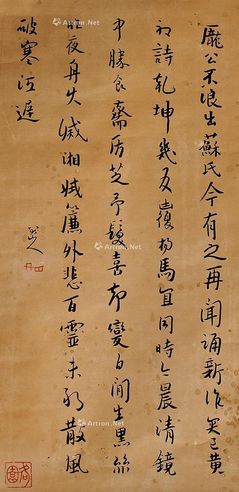 龐公不浪出蘇氏今有之再聞誦新作突過黃
初詩乾坤幾反復揚馬宜同時今晨清鏡
中勝食齋房芝予髮喜却變白間生黑絲
昨夜舟火滅湘娥簾外悲百靈未敢散風
破寒江遲
八大山人
Artron.Net